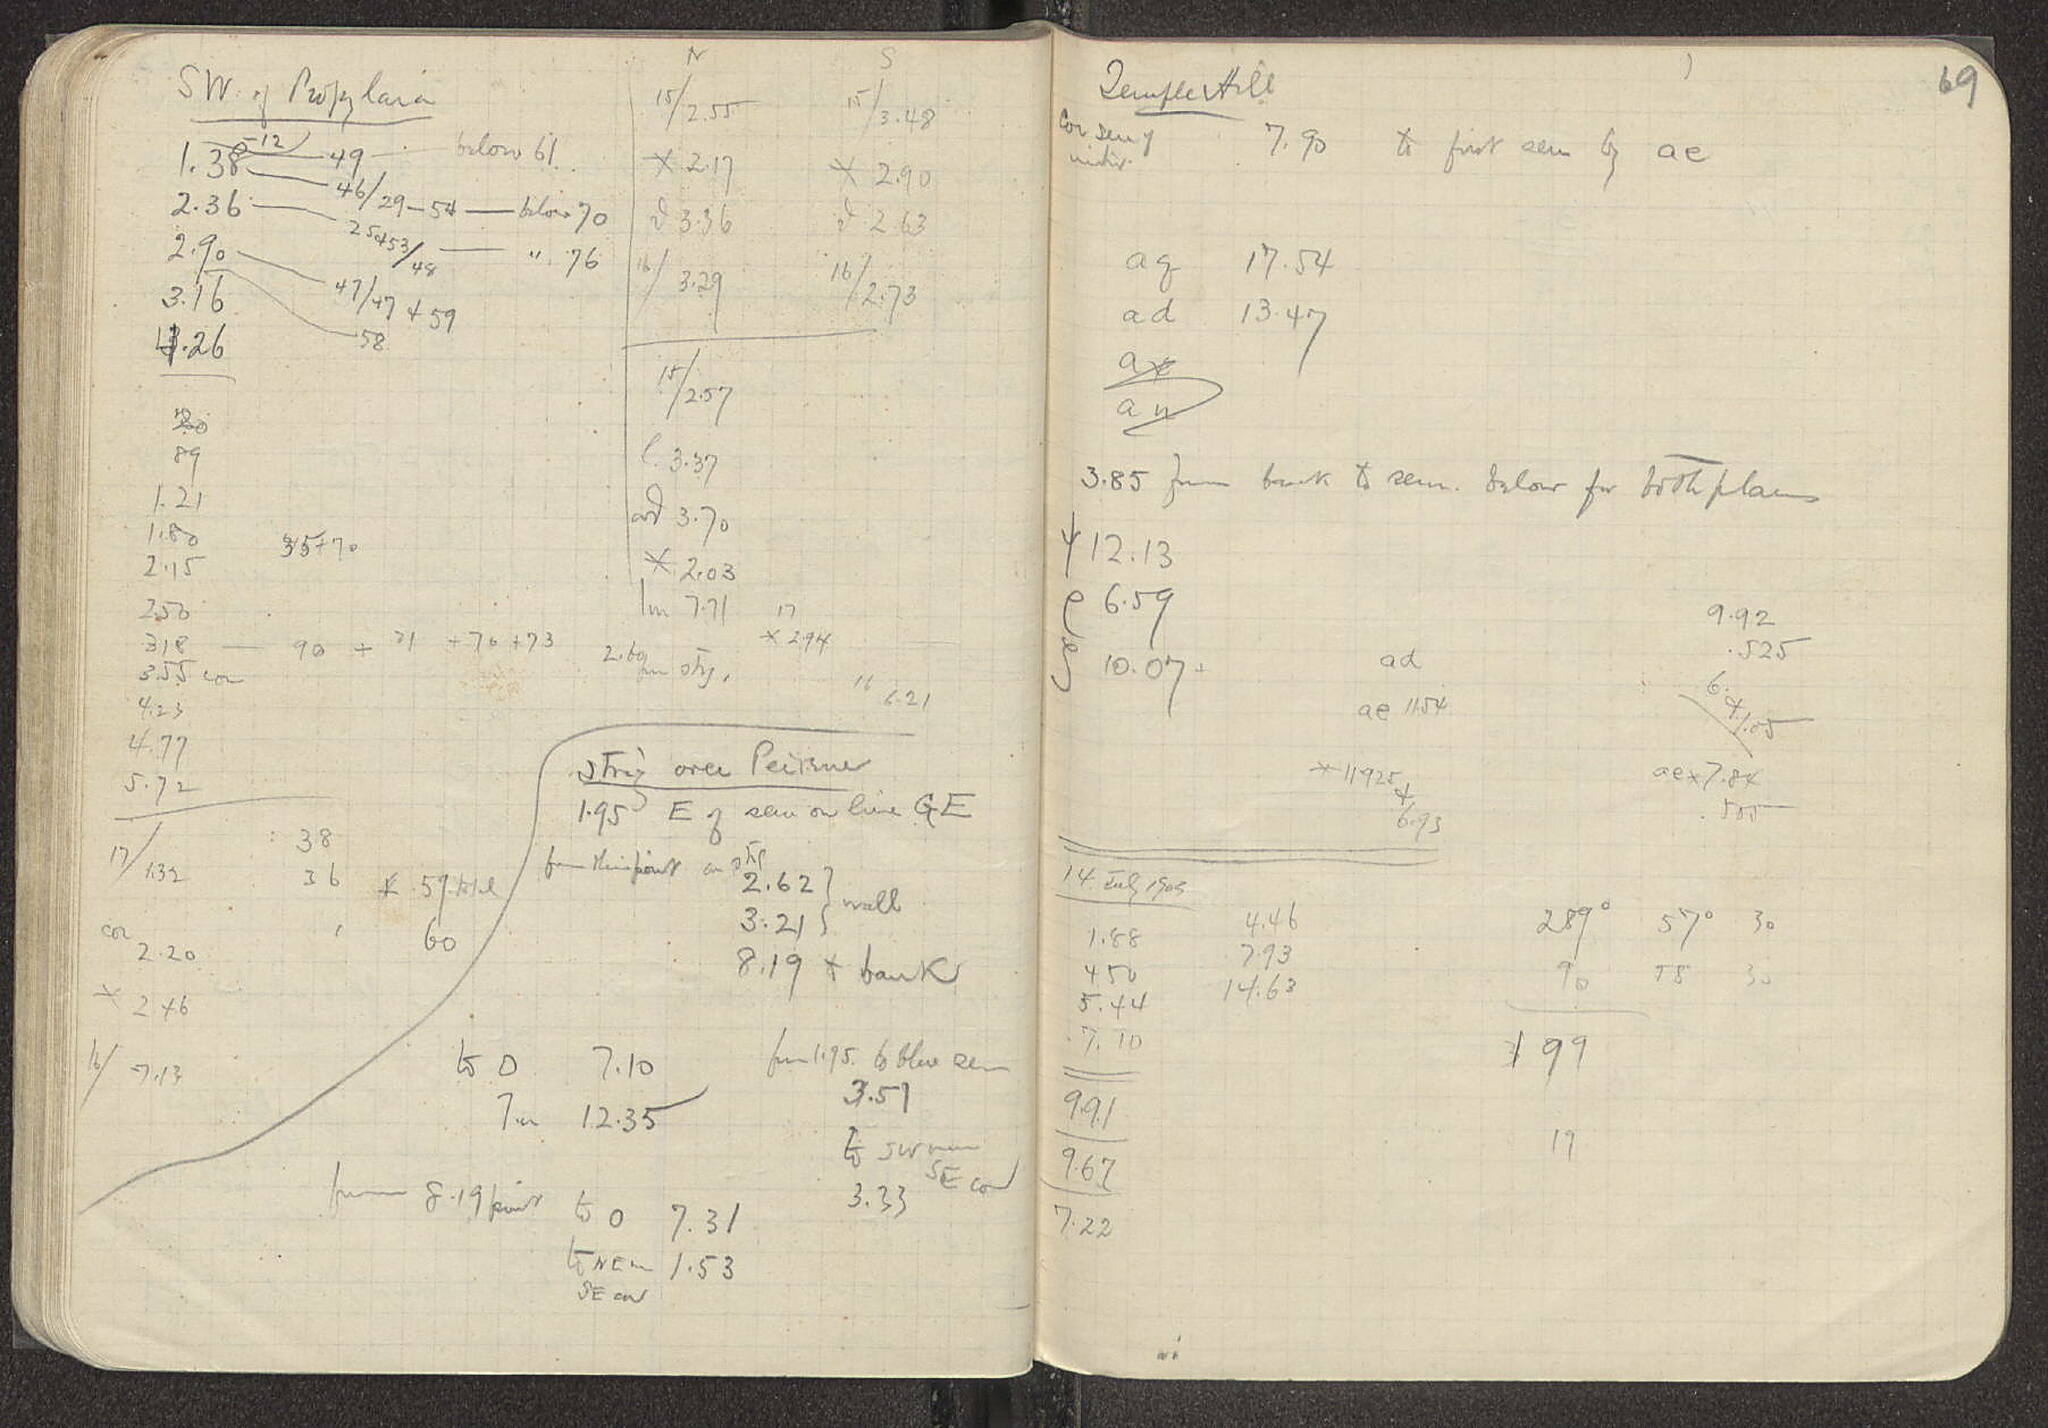 SW of Propylaia
-12
1.38 — 49 — below 61
46/29-54 — below 70
2.36
25+53/48 — " 76
2.90
47/47 + 59
3.16
58
4.26
80
89
1.21
1.80
35+70
2.15
2.50
3.18 — 90 + 21 + 70 + 73
3.55 cor
4.23
4.77
5.72
17/1.32
38
36
* .59 total
cor 2.20
60
* 2.46
16/ 7.13
N S
15/2.55 15/3.48
* 2.17 * 2.90
3.36 2.63
16/3.29 16/2.73
15/2.57
l. 3.37
3.70
* 2.03
7.71 17
* 2.94
2.60
16
6.21
string over Peirene
1.95 E of seru on line GE
from this point on str
2.62 } wall
3.21
8.19 * bank
to O 7.10
12.35
from 1.95 to blue seru
3.51
to
SE cor
3.33
from 8.19 point to O 7.31
to NE 1.53
SE cor
69
Temple Hill
7.90 to first seru by ae
aq 17.54
ad 13.47
ae
an
3.85 from bank to seru. below for both plans
ψ 12.13
ρ 6.59
10.07
ad
ae 11.54
* 11.925
+
6.93
9.92
.525
6.4
1.05
ae * 7.84
.505
14 July 1903
1.88 4.46
4.50 7.93
5.44 14.63
7.10
289° 57° 30
90 58 30
199
19
9.91
9.67
7.22